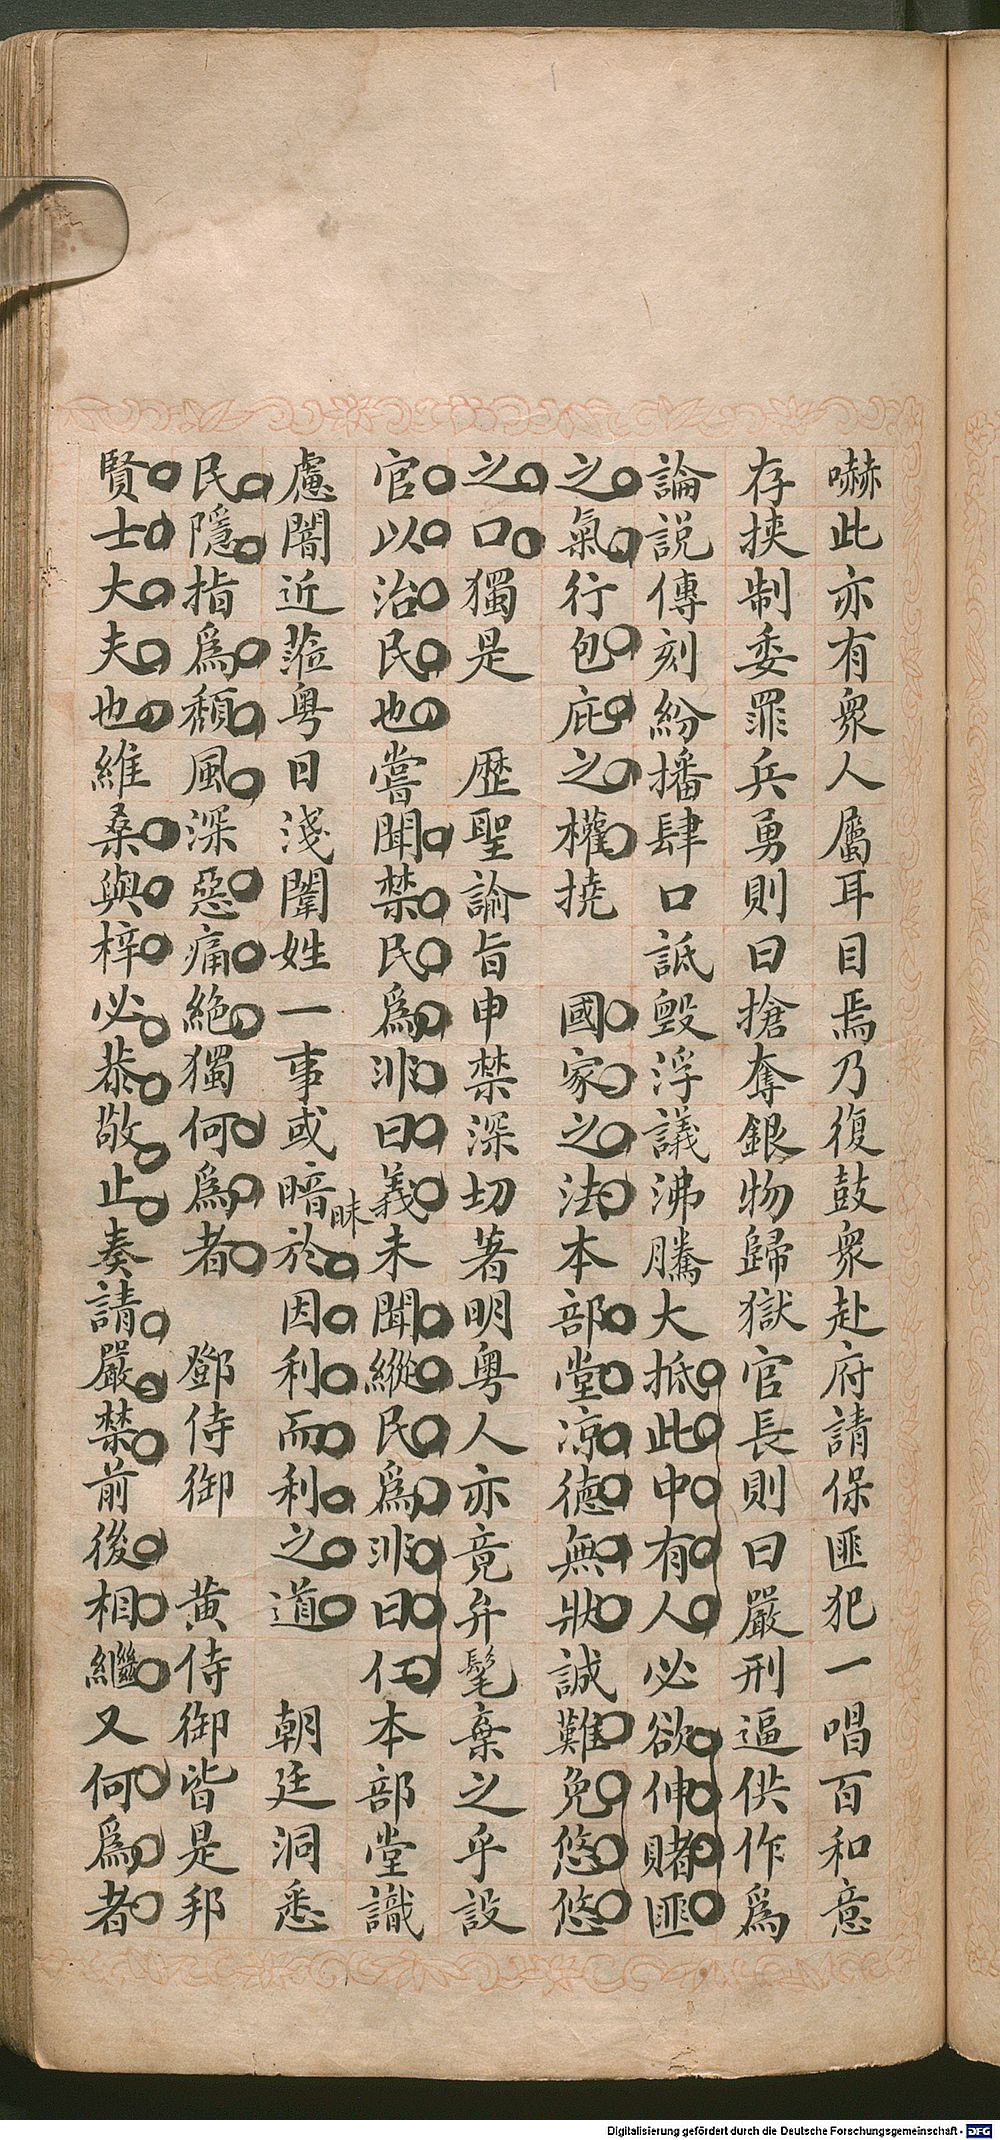 嚇此亦有衆人屬耳目焉乃復鼓衆赴府請保匪犯一唱百和意
存挾制委罪兵勇則曰搶奪銀物歸獄官長則曰嚴刑逼供作爲
論説傳刻紛播肆口詆毀浮議沸騰大抵此中有人必欲伸賭匪
之氣行包庇之權撓 國家之法本部堂涼德無狀誠難免悠悠
之口獨是 歷聖諭旨申禁深切著明粤人亦竟弁髦棄之乎設
官以治民也嘗聞禁民爲非曰義未聞縱民爲非曰仁本部堂識
慮闇近蒞粤日淺闈姓一事或暗昧於因利而利之道 朝廷洞悉
民隱指爲頹風深惡痛絶獨何爲者 鄧侍御 黄侍御皆是邦
賢士大夫也維桑與梓必恭敬止奏請嚴禁前後相繼又何爲者
Digitalisierung gefördert durch die Deutsche Forschungsgemeinschaft - DFG